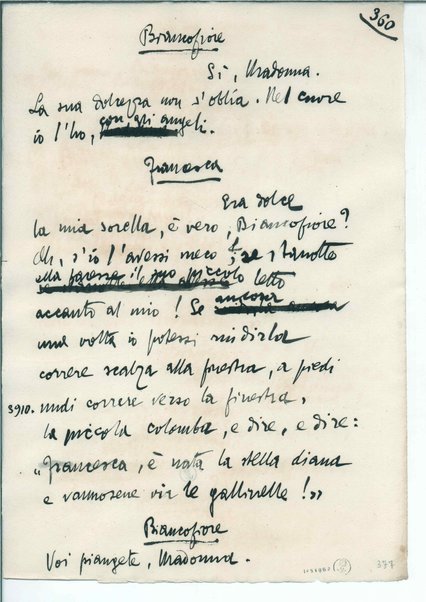 360
Biancofiore
Sì, Madonna.
La sua dolcezza non s'oblìa. Nel cuore
io l'ho, con gli angeli.
Francesca
Era dolce
la mia sorella, è vero, Biancofiore?
Oh, s'io l'avessi meco, se stanotte
ella facesse il suo piccolo letto
accanto al mio! Se ancora
una volta io potessi udirla
correre scalza alla finestra, a piedi
3910. nudi correre verso la finestra,
la piccola colomba, e dire, e dire:
"Francesca, è nata la stella diana
e vannosene via le gallinelle!"
Biancofiore
Voi piangete, Madonna.
377